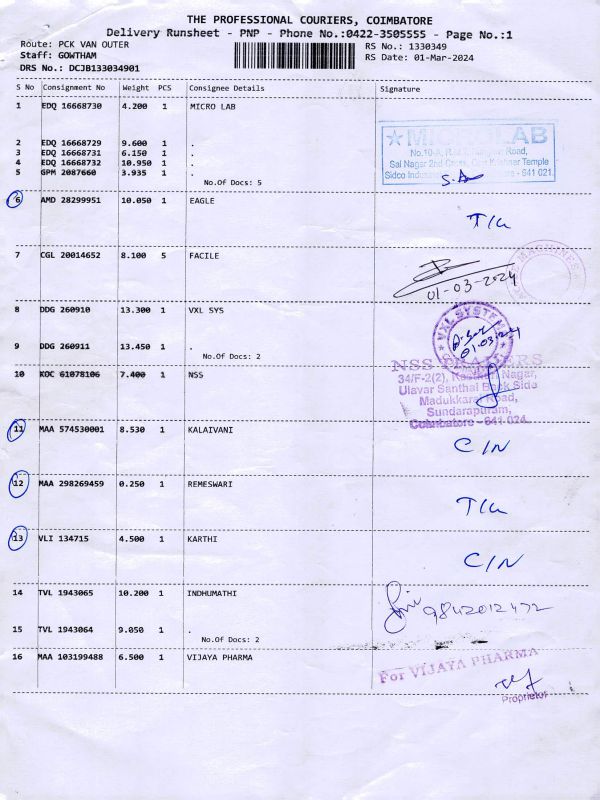 THE PROFESSIONAL COURIERS, COIMBATORE
Delivery Runsheet - PNP - Phone No.:0422-3505555 - Page No.:1
Route: PCK VAN OUTER RS No.: 1330349
Staff: GOWTHAM RS Date: 01-Mar-2024
DRS No.: DCJB133034901
S No Consignment No Weight PCS Consignee Details Signature
1 EDQ 16668730 4.200 1 MICRO LAB
2 EDQ 16668729 9.600 1 .
3 EDQ 16668731 6.150 1 .
4 EDQ 16668732 10.950 1 .
5 GPM 2087660 3.935 1 .
No.Of Docs: 5
LAB
No.10-A, Road,
Sai Nagar 2nd Temple
Sidco - 641 021.
S.A
6 AMD 28299951 10.050 1 EAGLE
T/L
7 CGL 20014652 8.100 5 FACILE
01-03-2024
8 DDG 260910 13.300 1 VXL SYS
VXL SYSTEMS
01.03.24
9 DDG 260911 13.450 1 .
No.Of Docs: 2
10 KOC 61078106 7.400 1 NSS
NSS TRADERS
34/F-2(2), Nagar,
Ulavar Santhai Back Side
Madukkarai Road,
Sundarapuram,
Coimbatore - 641 024.
11 MAA 574530001 8.530 1 KALAIVANI
C/N
12 MAA 298269459 0.250 1 REMESWARI
T/L
13 VLI 134715 4.500 1 KARTHI
C/N
14 TVL 1943065 10.200 1 INDHUMATHI
9842012472
15 TVL 1943064 9.050 1 .
No.Of Docs: 2
16 MAA 103199488 6.500 1 VIJAYA PHARMA
For VIJAYA PHARMA
Proprietor